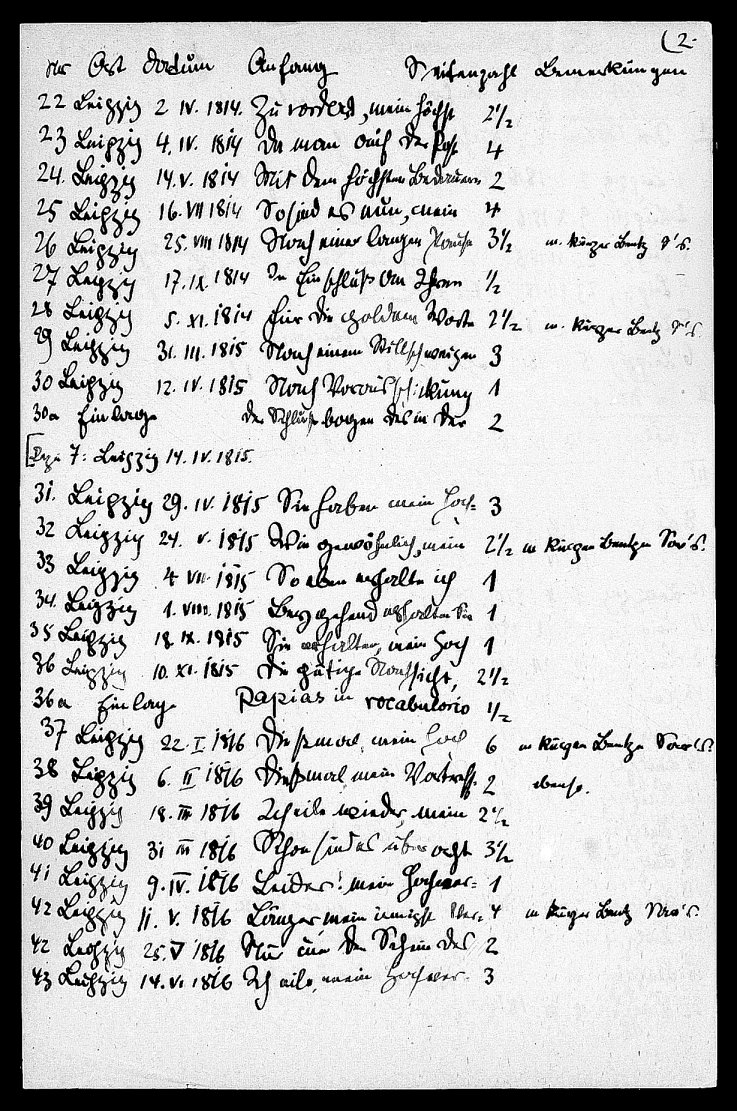 (2.
Nr Ort Datum Anfang Seitenzahl Bemerkungen
22 Leipzig 2. IV. 1814. Zuvorderst, mein höchst 2 1/2
23 Leipzig 4. IV. 1814 Da man auf der Post 4
24. Leipzig 14. V. 1814 Mit dem höchsten Bedauern 2
25 Leipzig 16. VII 1814 So sind es nun, mein 4
26 Leipzig 25. VIII 1814 Nach einer langen Pause 3 1/2 m. kurzer S's.
27 Leipzig 17. IX. 1814 Der Einschluß an Ihren 1/2
28 Leipzig 5. XI. 1814 Für die goldnen Worte 2 1/2 m. kurzer S's
29 Leipzig 31. III. 1815 Nach einem Stillschweigen 3
30 Leipzig 12. IV. 1815 Nach Vorausschickung 1
30a Einlage Der Schlußbogen des in der 2
7: Leipzig 14. IV. 1815.
31. Leipzig 29. IV. 1815 Sie haben mein Hoch= 3
32 Leipzig 24. V. 1815 Wie gewöhnlich, mein 2 1/2 m kurzen Sav's.
33 Leipzig 4 VII 1815 So eben erhalte ich 1
34. Leipzig 1. VIII. 1815 Beygehend erhalten Sie 1
35 Leipzig 18. IX. 1815 Sie erhalten, mein Hoch 1
36 Leipzig 10. XI. 1815 Die gütige Nachsicht, 2 1/2
36a Einlage Papias in vocabulorio 1/2
37 Leipzig 22. I 1816 Dießmal, mein Hoch 6 m kurzen Sav's.
38 Leipzig 6. II 1816 Dießmal, mein Vortreff. 2 ebenso.
39 Leipzig 18. III 1816 Ich eile wieder, mein 2 1/2
40 Leipzig 31 III 1816 Schon sind es über acht 3 1/2
41 Leipzig 9. IV. 1816 Leider! mein Hochver= 1
42 Leipzig 11. V. 1816 Länger mein innigst Ver= 4 m kurzer Sav's.
42 Leipzig 25. V 1816 Nur um den Schein des 2
43 Leipzig 14. V. 1816 Ich eile, mein Hochver= 3